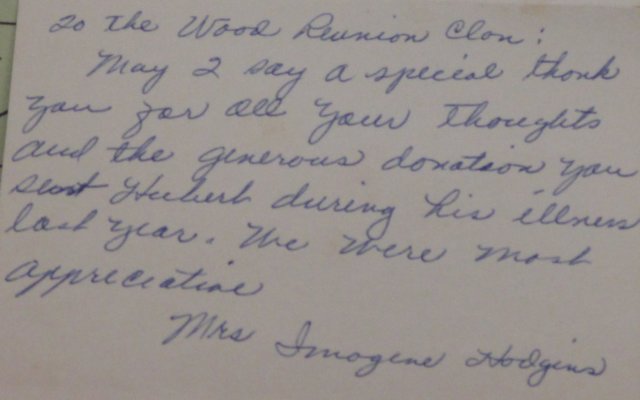 To the Wood Reunion Clan:
May I say a special thank
you for all your thoughts
and the generous donation you
sent Hubert during his illness
last year. We were most
appreciative
Mrs Imogene Hodgins